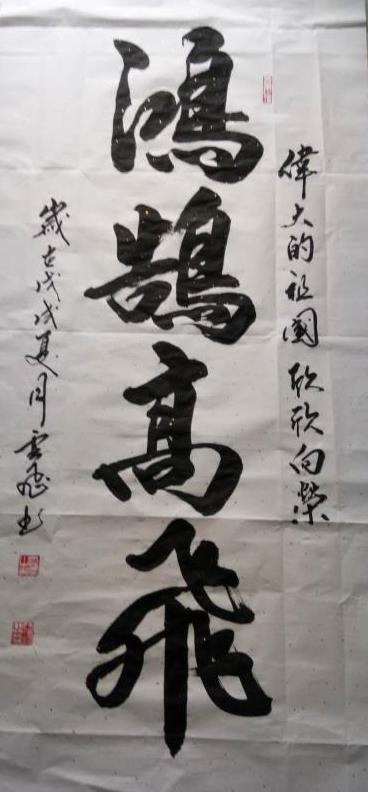 偉大的祖國欣欣向榮
鴻鵠高飛
歲在戊戌夏月雲飛書